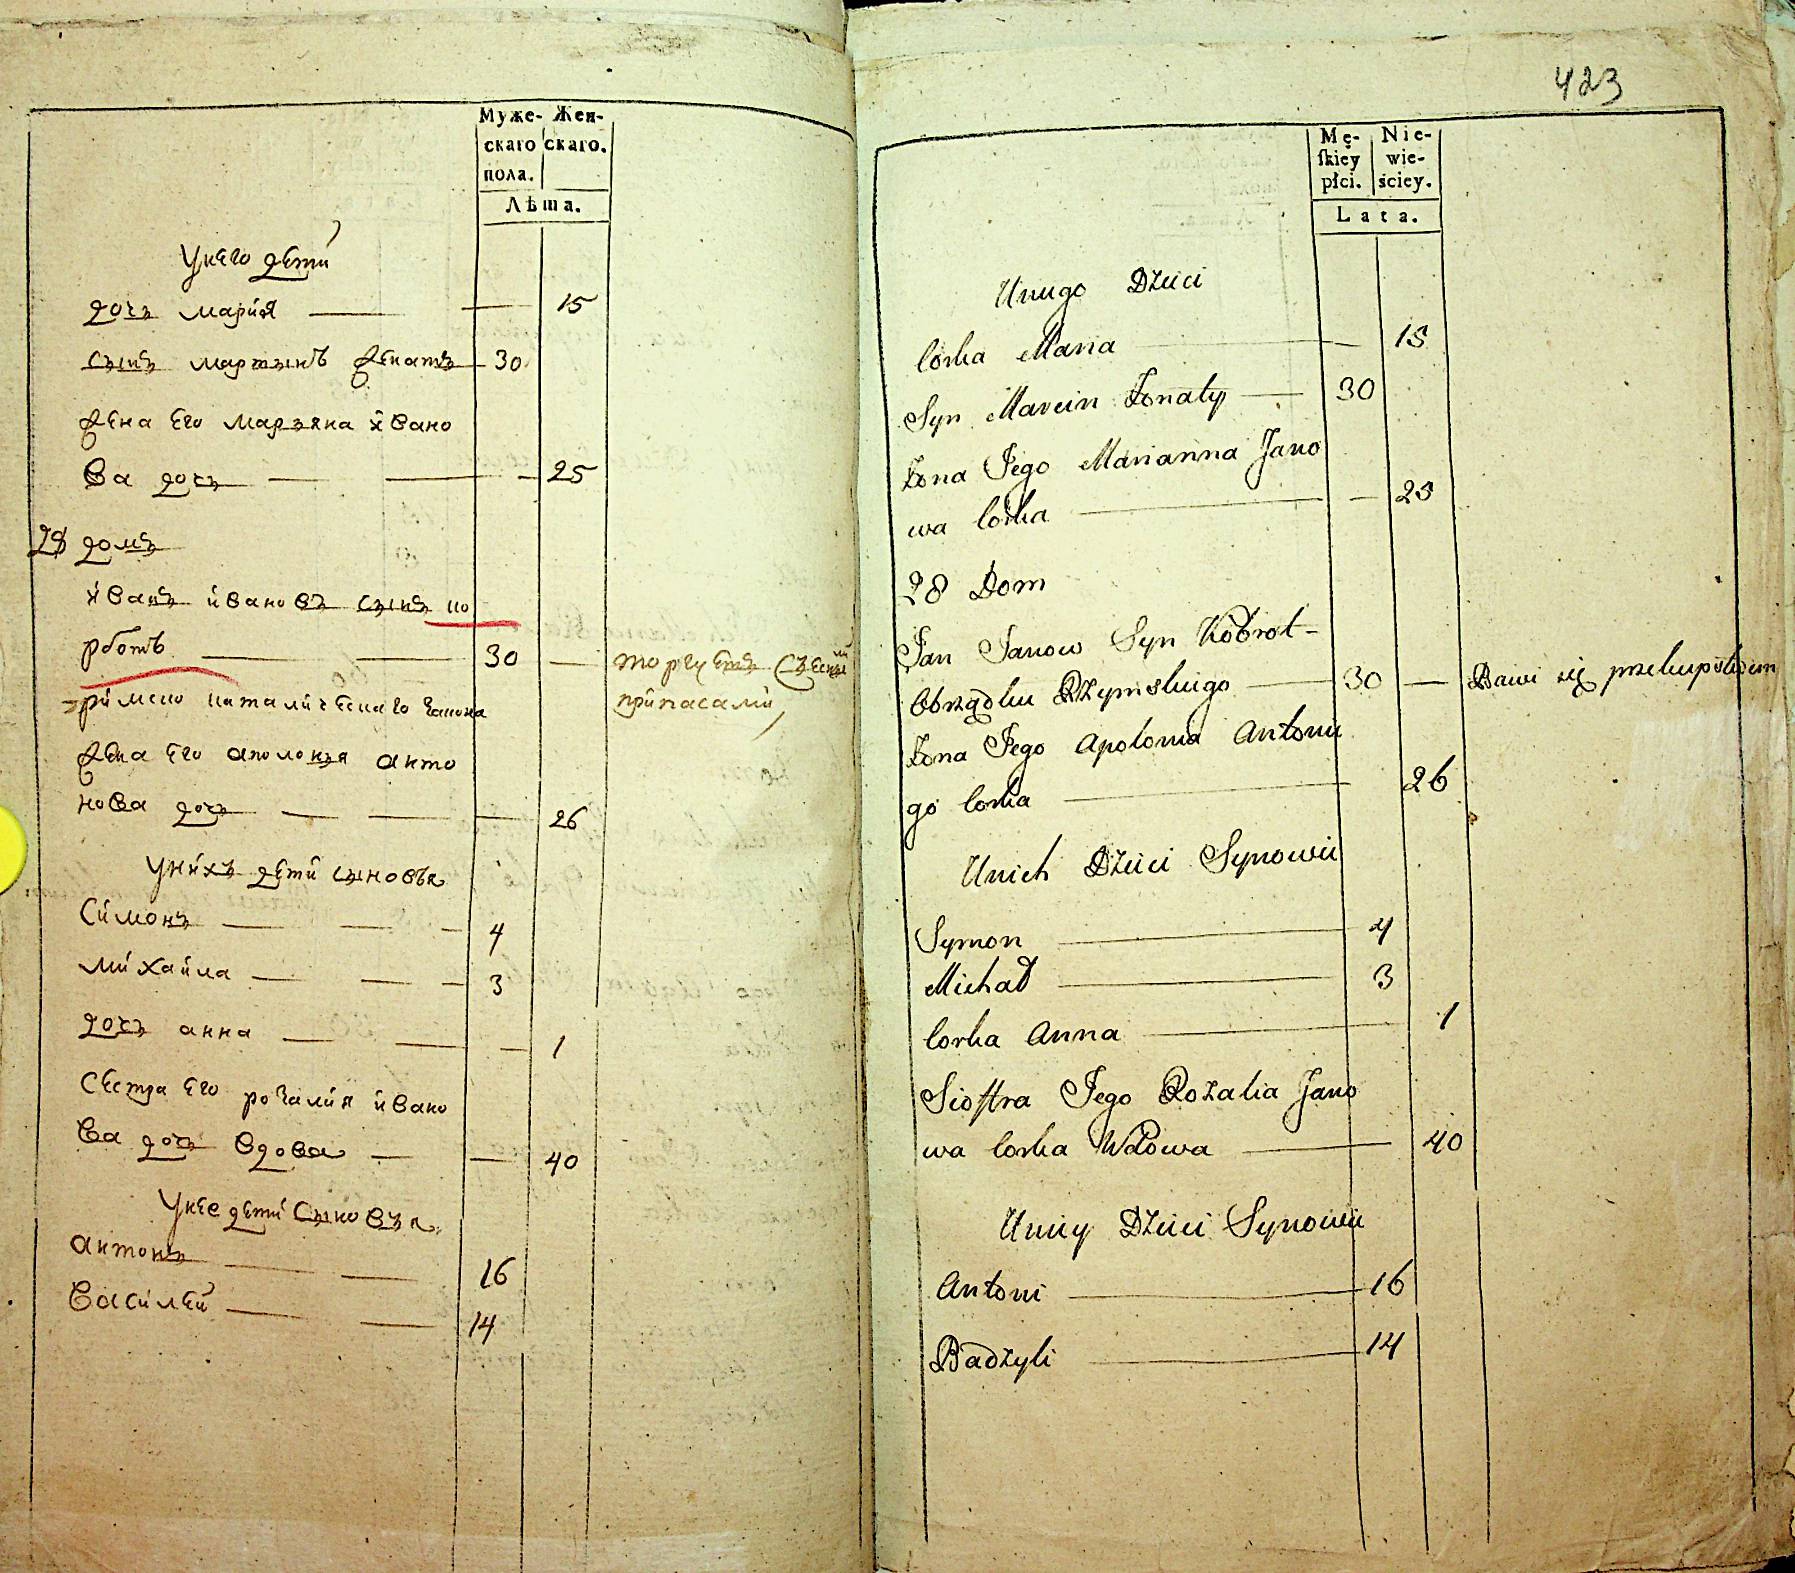 Муже- Жен-
скаго скаго.
пола.
Лѣта.
Унего дети
дочъ мария 15
сынъ мартынъ женатъ 30
жена его марьяна ивано
ва дочъ 25
28 домъ
иванъ ивановъ сынъ ко
рботъ 30 торгуетъ съесны
ми
римско католическаго закона припасами
жена его аполонья анто
нова дочъ 26
унихъ дети сыновья
Симонъ 4
михайла 3
дочъ анна 1
Сестра его розалия ивано
ва дочъ вдова 40
Унее дети сыновья
антонъ 16
василей 14
423
Mę- Nie-
skiey wie-
płci. ściey.
Lata.
Uniego Dzieci
Corka Maria 15
Syn Marcin Zonaty 30
Zona Jego Marianna Jano
wa Corka 25
28 Dom
Jan Janow Syn Kobrot-
Obrządku Rzymskiego 30 Bawi się przekupstwem
Zona Jego Apolonia Antonie
go Corka 26
Unich Dzieci Synowie
Symon 4
Michał 3
Corka Anna 1
Siostra Jego Rozalia Jano
wa Corka Wdowa 40
Uniey Dzieci Synowie
Antoni 16
Badzyli 14